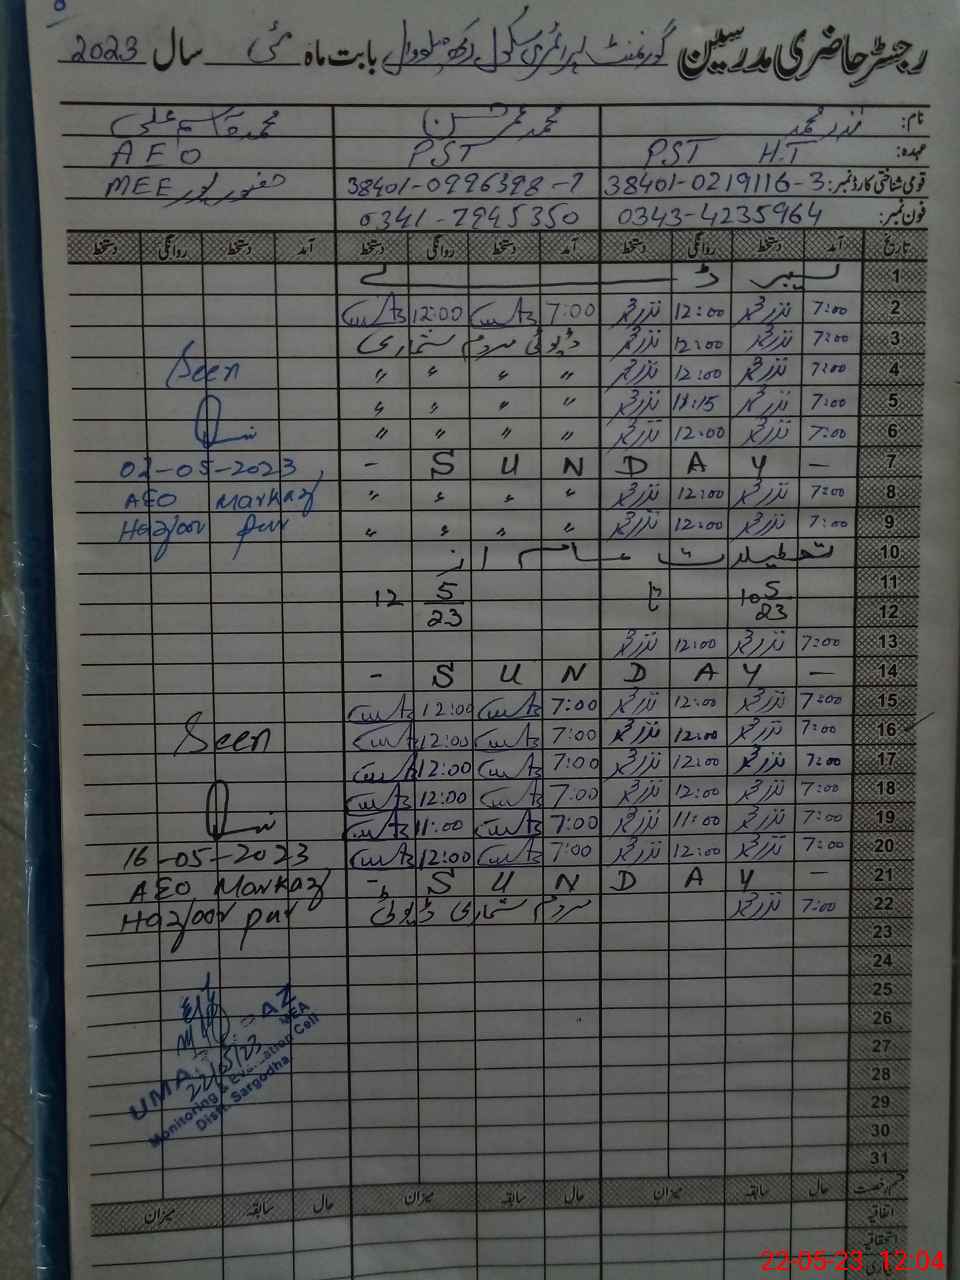 رجسٹر حاضری مدرسین گورنمنٹ پرائمری سکول رکھ بابت ماہ مئی سال 2023
نام: نذر محمد محمد حسن محمد قاسم علی
عہدہ: PST H.T PST AEO
قومی شناختی کارڈ نمبر: 38401-0219116-3 38401-0996398-7 MEE حضور پور
فون نمبر: 0343-4235964 0341-7945350
تاریخ آمد دستخط روانگی دستخط آمد دستخط روانگی دستخط آمد دستخط روانگی دستخط
1 لیبر ڈے
2 7:00 نذر محمد 12:00 نذر محمد 7:00 12:00
3 7:00 نذر محمد 12:00 نذر محمد ڈیوٹی مردم شماری
4 7:00 نذر محمد 12:00 نذر محمد " " " " Seen
5 7:00 نذر محمد 11:15 نذر محمد " " " "
6 7:00 نذر محمد 12:00 نذر محمد " " " "
7 - S U N D A Y - 02-05-2023
8 7:00 نذر محمد 12:00 نذر محمد " " " " AEO Markaz
9 7:00 نذر محمد 12:00 نذر محمد " " " " Hazoor pur
10 تعطیلات عام از
11 10 5/23 تا 12 5/23
12
13 7:00 نذر محمد 12:00 نذر محمد
14 - S U N D A Y -
15 7:00 نذر محمد 12:00 نذر محمد 7:00 12:00
16 7:00 نذر محمد 12:00 نذر محمد 7:00 12:00 Seen
17 7:00 نذر محمد 12:00 نذر محمد 7:00 12:00
18 7:00 نذر محمد 12:00 نذر محمد 7:00 12:00
19 7:00 نذر محمد 11:00 نذر محمد 7:00 11:00
20 7:00 نذر محمد 12:00 نذر محمد 7:00 12:00 16-05-2023
21 - S U N D A Y - AEO Markaz
22 7:00 نذر محمد مردم شماری ڈیوٹی Hazoor pur
23
24
25
26
27
28
29
30
31
UMA AZ
22/5/23 MEA
Monitoring & Evaluation Cell
Distt. Sargodha
قسم رخصت حال سابقہ میزان حال سابقہ میزان حال سابقہ میزان
اتفاقیہ
استحقاقیہ
22-05-23 12:04